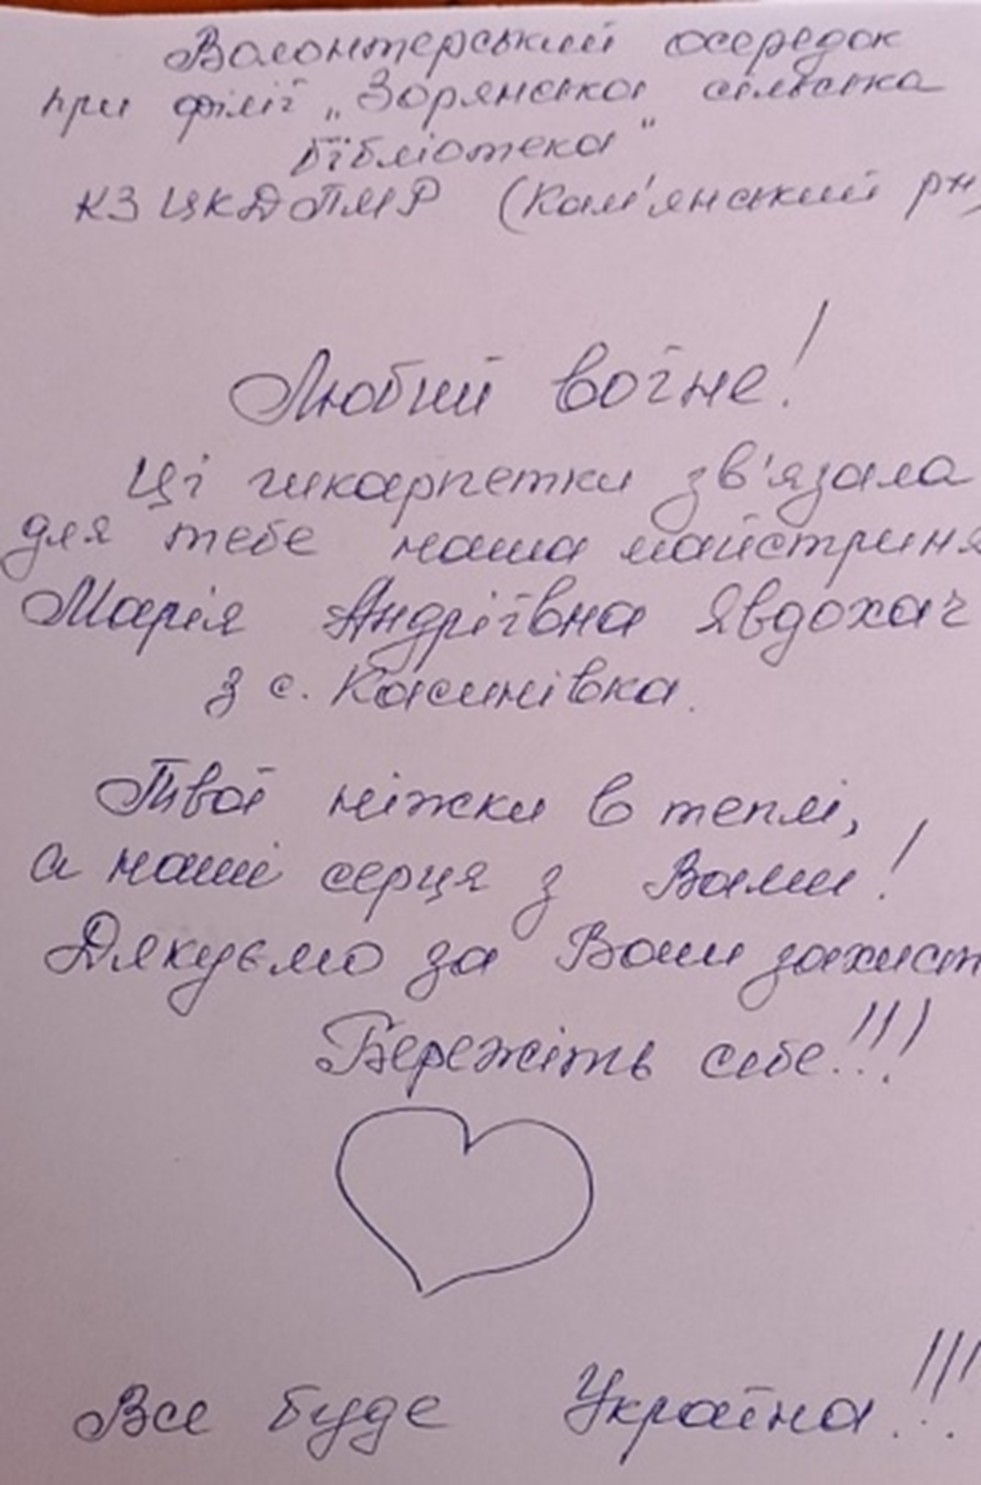 Волонтерський осередок
при філії „Зорянська сільська
бібліотека"
КЗ ЦКДПМР (Кам'янський рн)
Любий воїне!
Ці шкарпетки зв'язала
для тебе наша майстриня
Марія Андріївна Явдохач
з с. Касинівка.
Твої ніжки в теплі,
а наші серця з Вами!
Дякуємо за Ваш захист
Бережіть себе!!!
Все буде Україна!!!